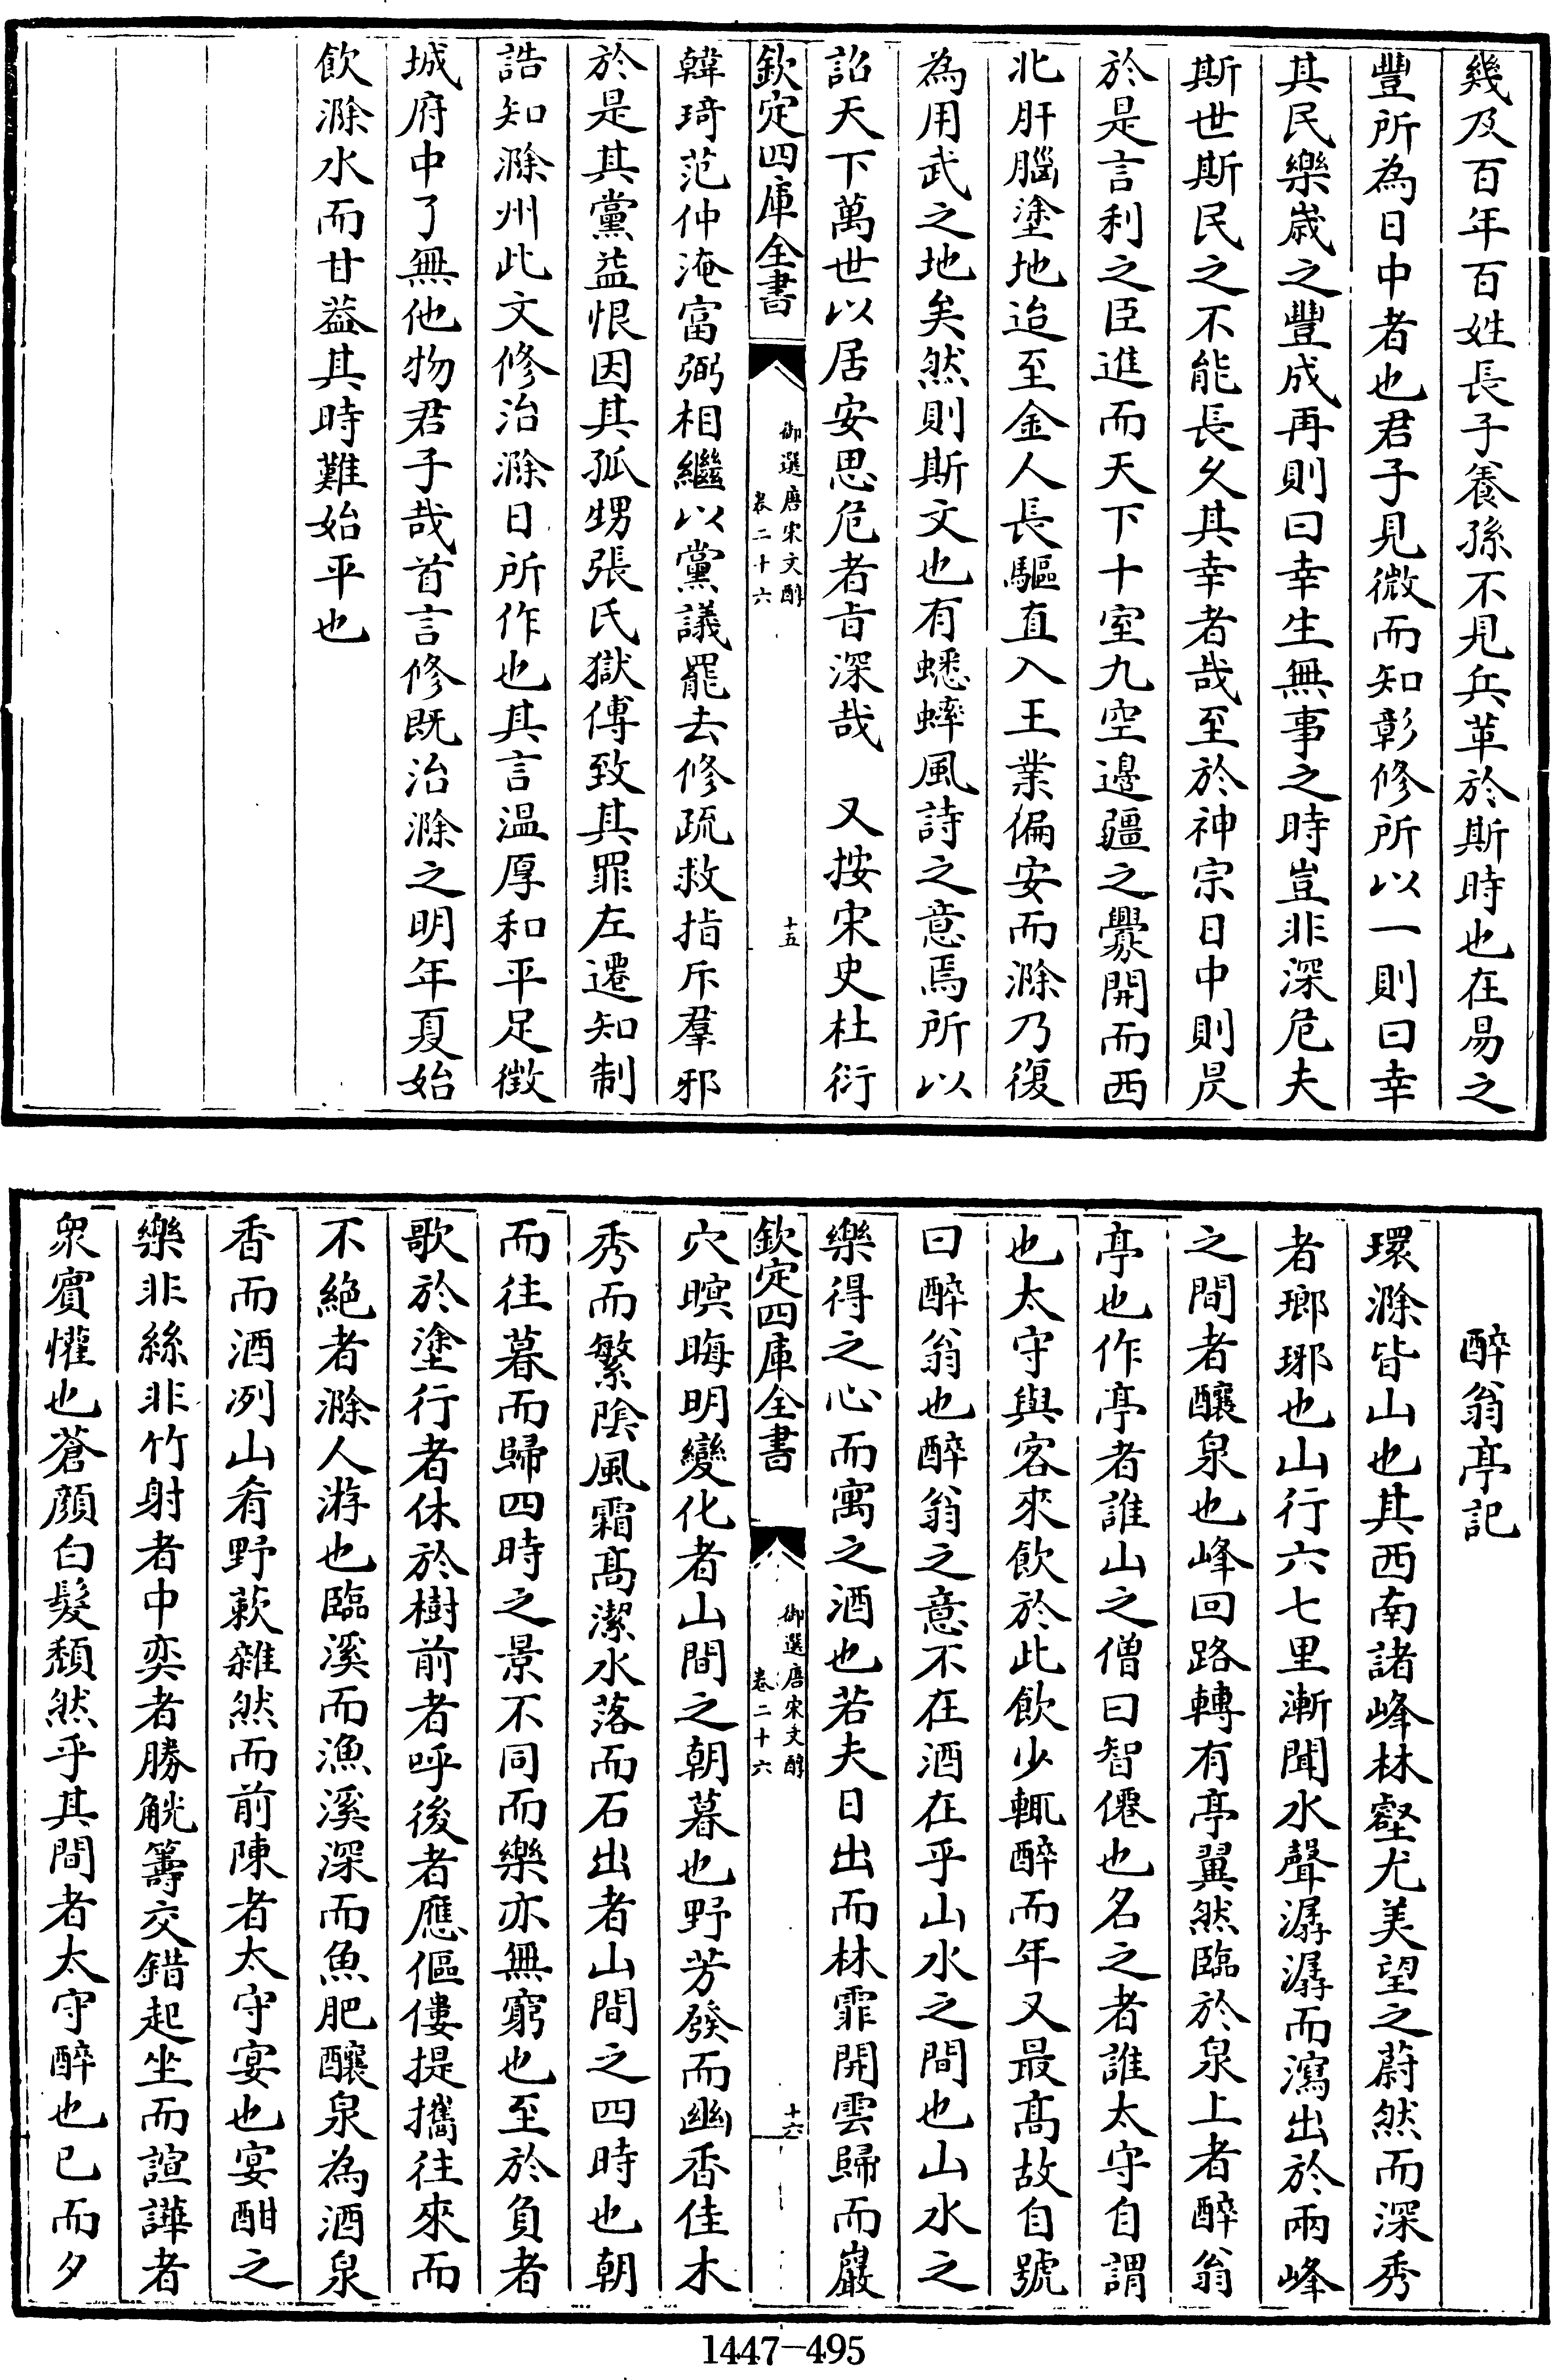 幾及百年百姓長子養孫不見兵革於斯時也在易之
豐所為日中者也君子見微而知彰修所以一則曰幸
其民樂歲之豐成再則曰幸生無事之時豈非深危夫
斯世斯民之不能長久其幸者哉至於神宗日中則昃
於是言利之臣進而天下十室九空邊疆之釁開而西
北肝腦塗地迨至金人長驅直入王業偏安而滁乃復
為用武之地矣然則斯文也有蟋蟀風詩之意焉所以
詔天下萬世以居安思危者旨深哉 又按宋史杜衍
欽定四庫全書
御選唐宋文醇
卷二十六
十五
韓琦范仲淹富弼相繼以黨議罷去修疏救指斥羣邪
於是其黨益恨因其孤甥張氏獄傅致其罪左遷知制
誥知滁州此文修治滁日所作也其言温厚和平足徴
城府中了無他物君子哉首言修既治滁之明年夏始
飲滁水而甘葢其時難始平也
醉翁亭記
環滁皆山也其西南諸峰林壑尤美望之蔚然而深秀
者瑯琊也山行六七里漸聞水聲潺潺而瀉出於兩峰
之間者釀泉也峰回路轉有亭翼然臨於泉上者醉翁
亭也作亭者誰山之僧曰智僊也名之者誰太守自謂
也太守與客來飲於此飲少輒醉而年又最髙故自號
曰醉翁也醉翁之意不在酒在乎山水之間也山水之
樂得之心而寓之酒也若夫日出而林霏開雲歸而巖
欽定四庫全書
御選唐宋文醇
卷二十六
十六
穴暝晦明變化者山間之朝暮也野芳發而幽香佳木
秀而繁陰風霜髙潔水落而石出者山間之四時也朝
而往暮而歸四時之景不同而樂亦無窮也至於負者
歌於塗行者休於樹前者呼後者應傴僂提攜往來而
不絶者滁人游也臨溪而漁溪深而魚肥釀泉為酒泉
香而酒冽山肴野蔌雜然而前陳者太守宴也宴酣之
樂非絲非竹射者中奕者勝觥籌交錯起坐而諠譁者
衆賓懽也蒼顔白髮頽然乎其間者太守醉也已而夕
1447-495